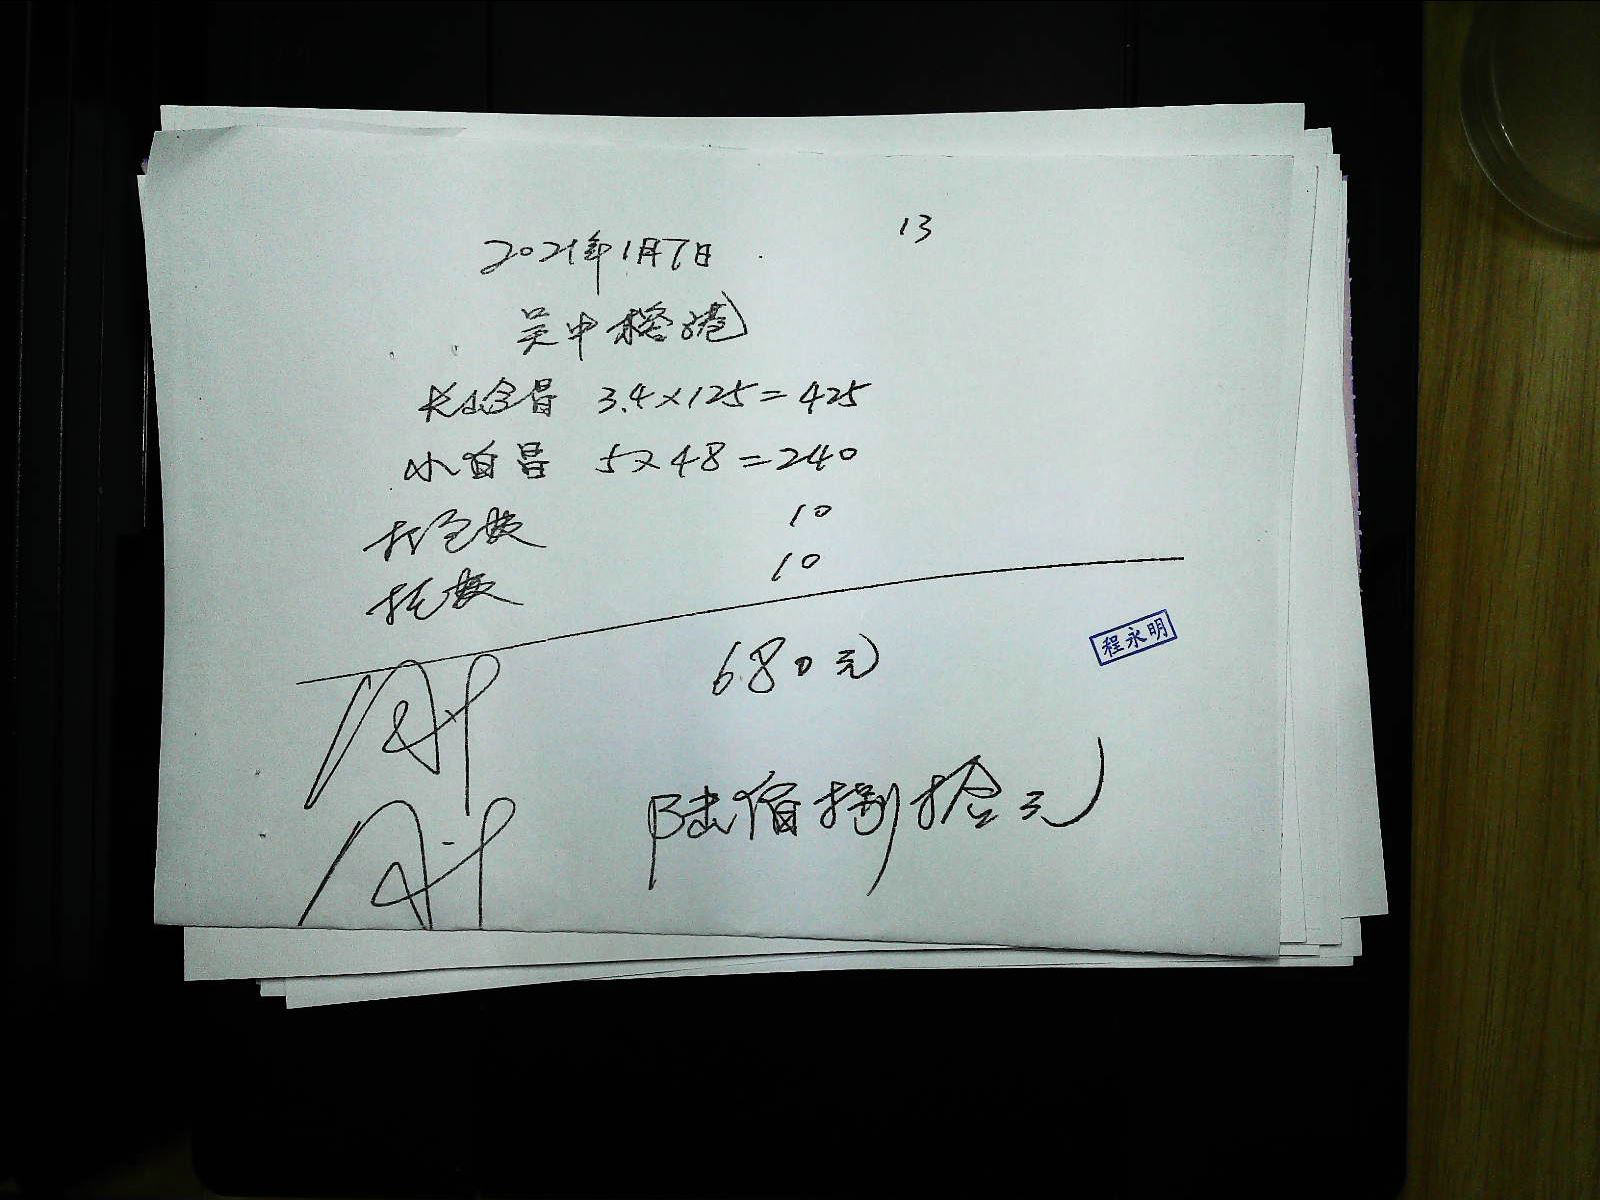 13
2021年1月7日
吴中榕港
长山合昌 3.4×125=425
小白昌 5×48=240
打包费 10
托费 10
680元
程永明
陆佰捌拾元